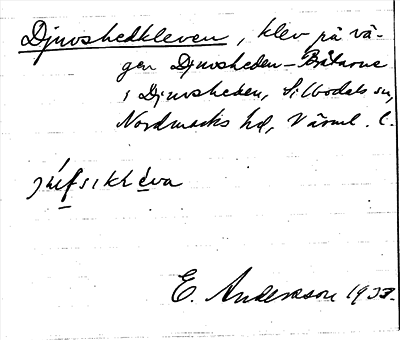 Djuvshedkleven, klev på vä-
gen Djuvsheden - Bålarne
i Djuvsheden, Silbodals sn,
Nordmarks hd, Värml. l.
E. Andersson 1933.